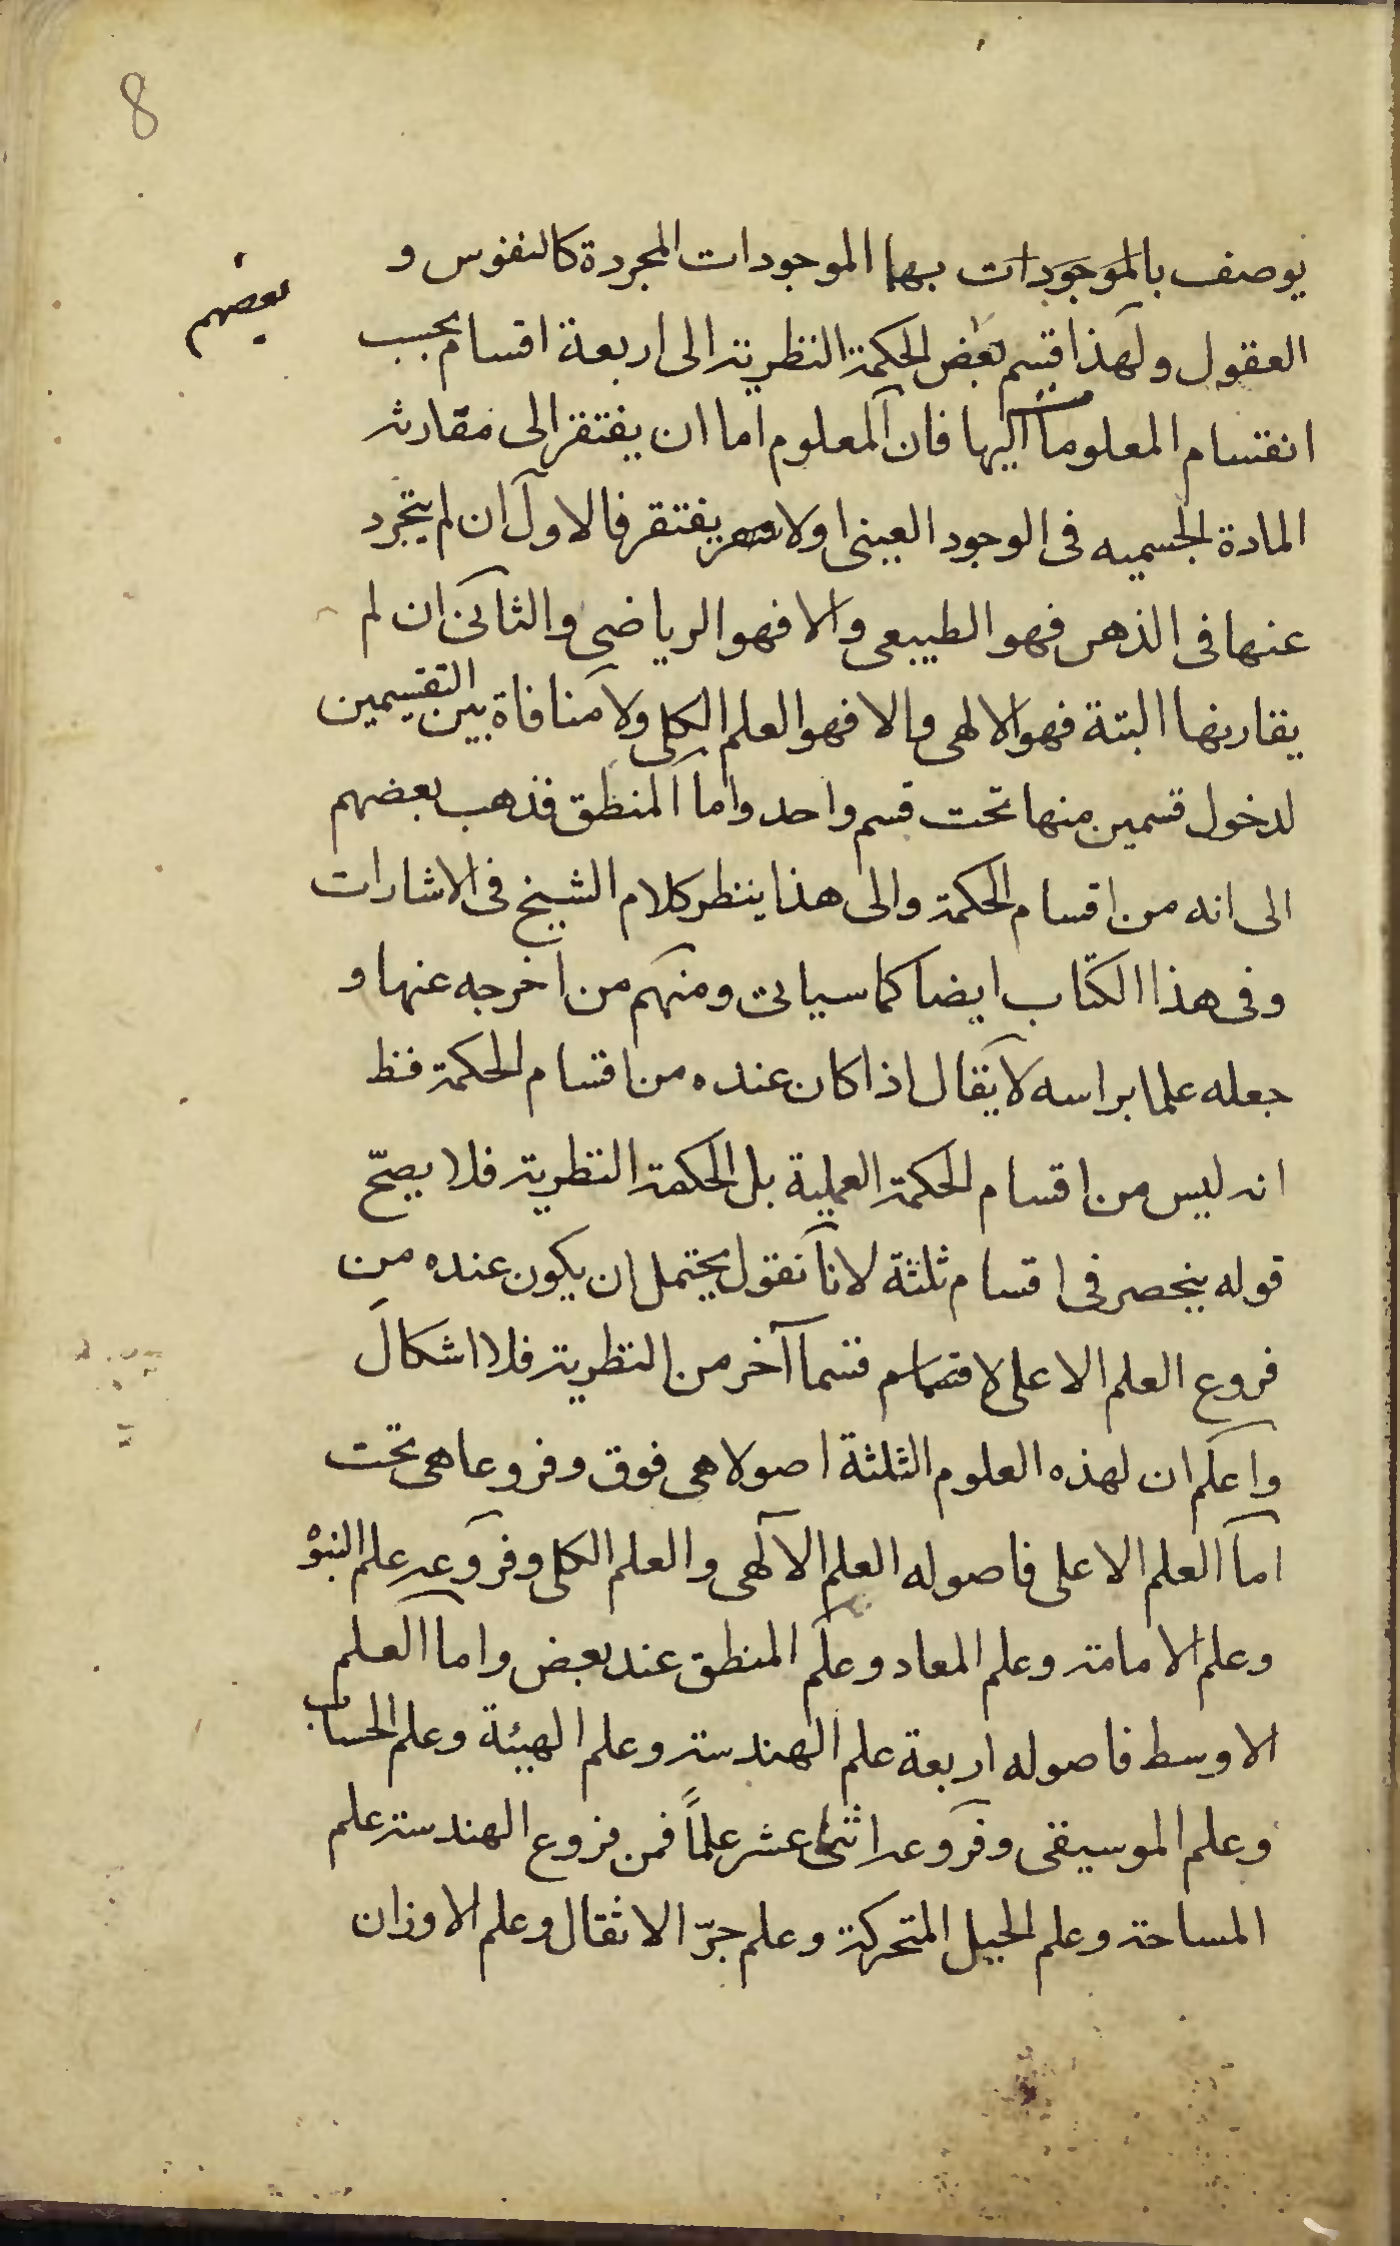 8
يوصف بالموجودات بها الموجودات المجردة كالنفوس و
بعضهم
العقول ولهذا قسم بعض الحكمة النظرية الى اربعة اقسام بحسب
انقسام المعلومات اليها فان المعلوم اما ان يفتقر الى مقارنة
المادة الجسميه فى الوجود العينى اولا يفتقر فالاول ان لم يتجرد
عنها فى الذهن فهو الطبيعى والا فهو الرياضى والثانى ان لم
يقارنها البتة فهو الالهى والا فهو العلم الكلى ولا منافاة بين التقسيمين
لدخول قسمين منها تحت قسم واحد واما المنطق فذهب بعضهم
الى انه من اقسام الحكمة والى هذا ينظر كلام الشيخ فى الاشارات
وفى هذا الكتاب ايضا كما سياتى ومنهم من اخرجه عنها و
جعله علما براسه لا يقال اذا كان عنده من اقسام الحكمة فظ
انه ليس من اقسام الحكمة العملية بل الحكمة النظرية فلا يصحّ
قوله ينحصر فى اقسام ثلثة لانا نقول يحتمل ان يكون عنده من
فروع العلم الاعلى لا قسما آخر من النظرية فلا اشكال
واعلم ان لهذه العلوم الثلثة اصولا هى فوق وفروعا هى تحت
اما العلم الاعلى فاصوله العلم الآلهى والعلم الكلى وفروعه علم النبوة
وعلم الامامة وعلم المعاد وعلم المنطق عند بعض واما العلم
الاوسط فاصوله اربعة علم الهندسة وعلم الهيئة وعلم الحساب
وعلم الموسيقى وفروعه اثنى عشر علماً فمن فروع الهندسة علم
المساحة وعلم الحيل المتحركة وعلم جرّ الاثقال وعلم الاوزان